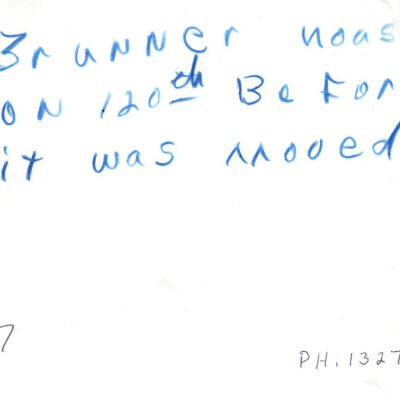 Brunner hoas
on 120th Befor
it was mooed
7
PH.1327